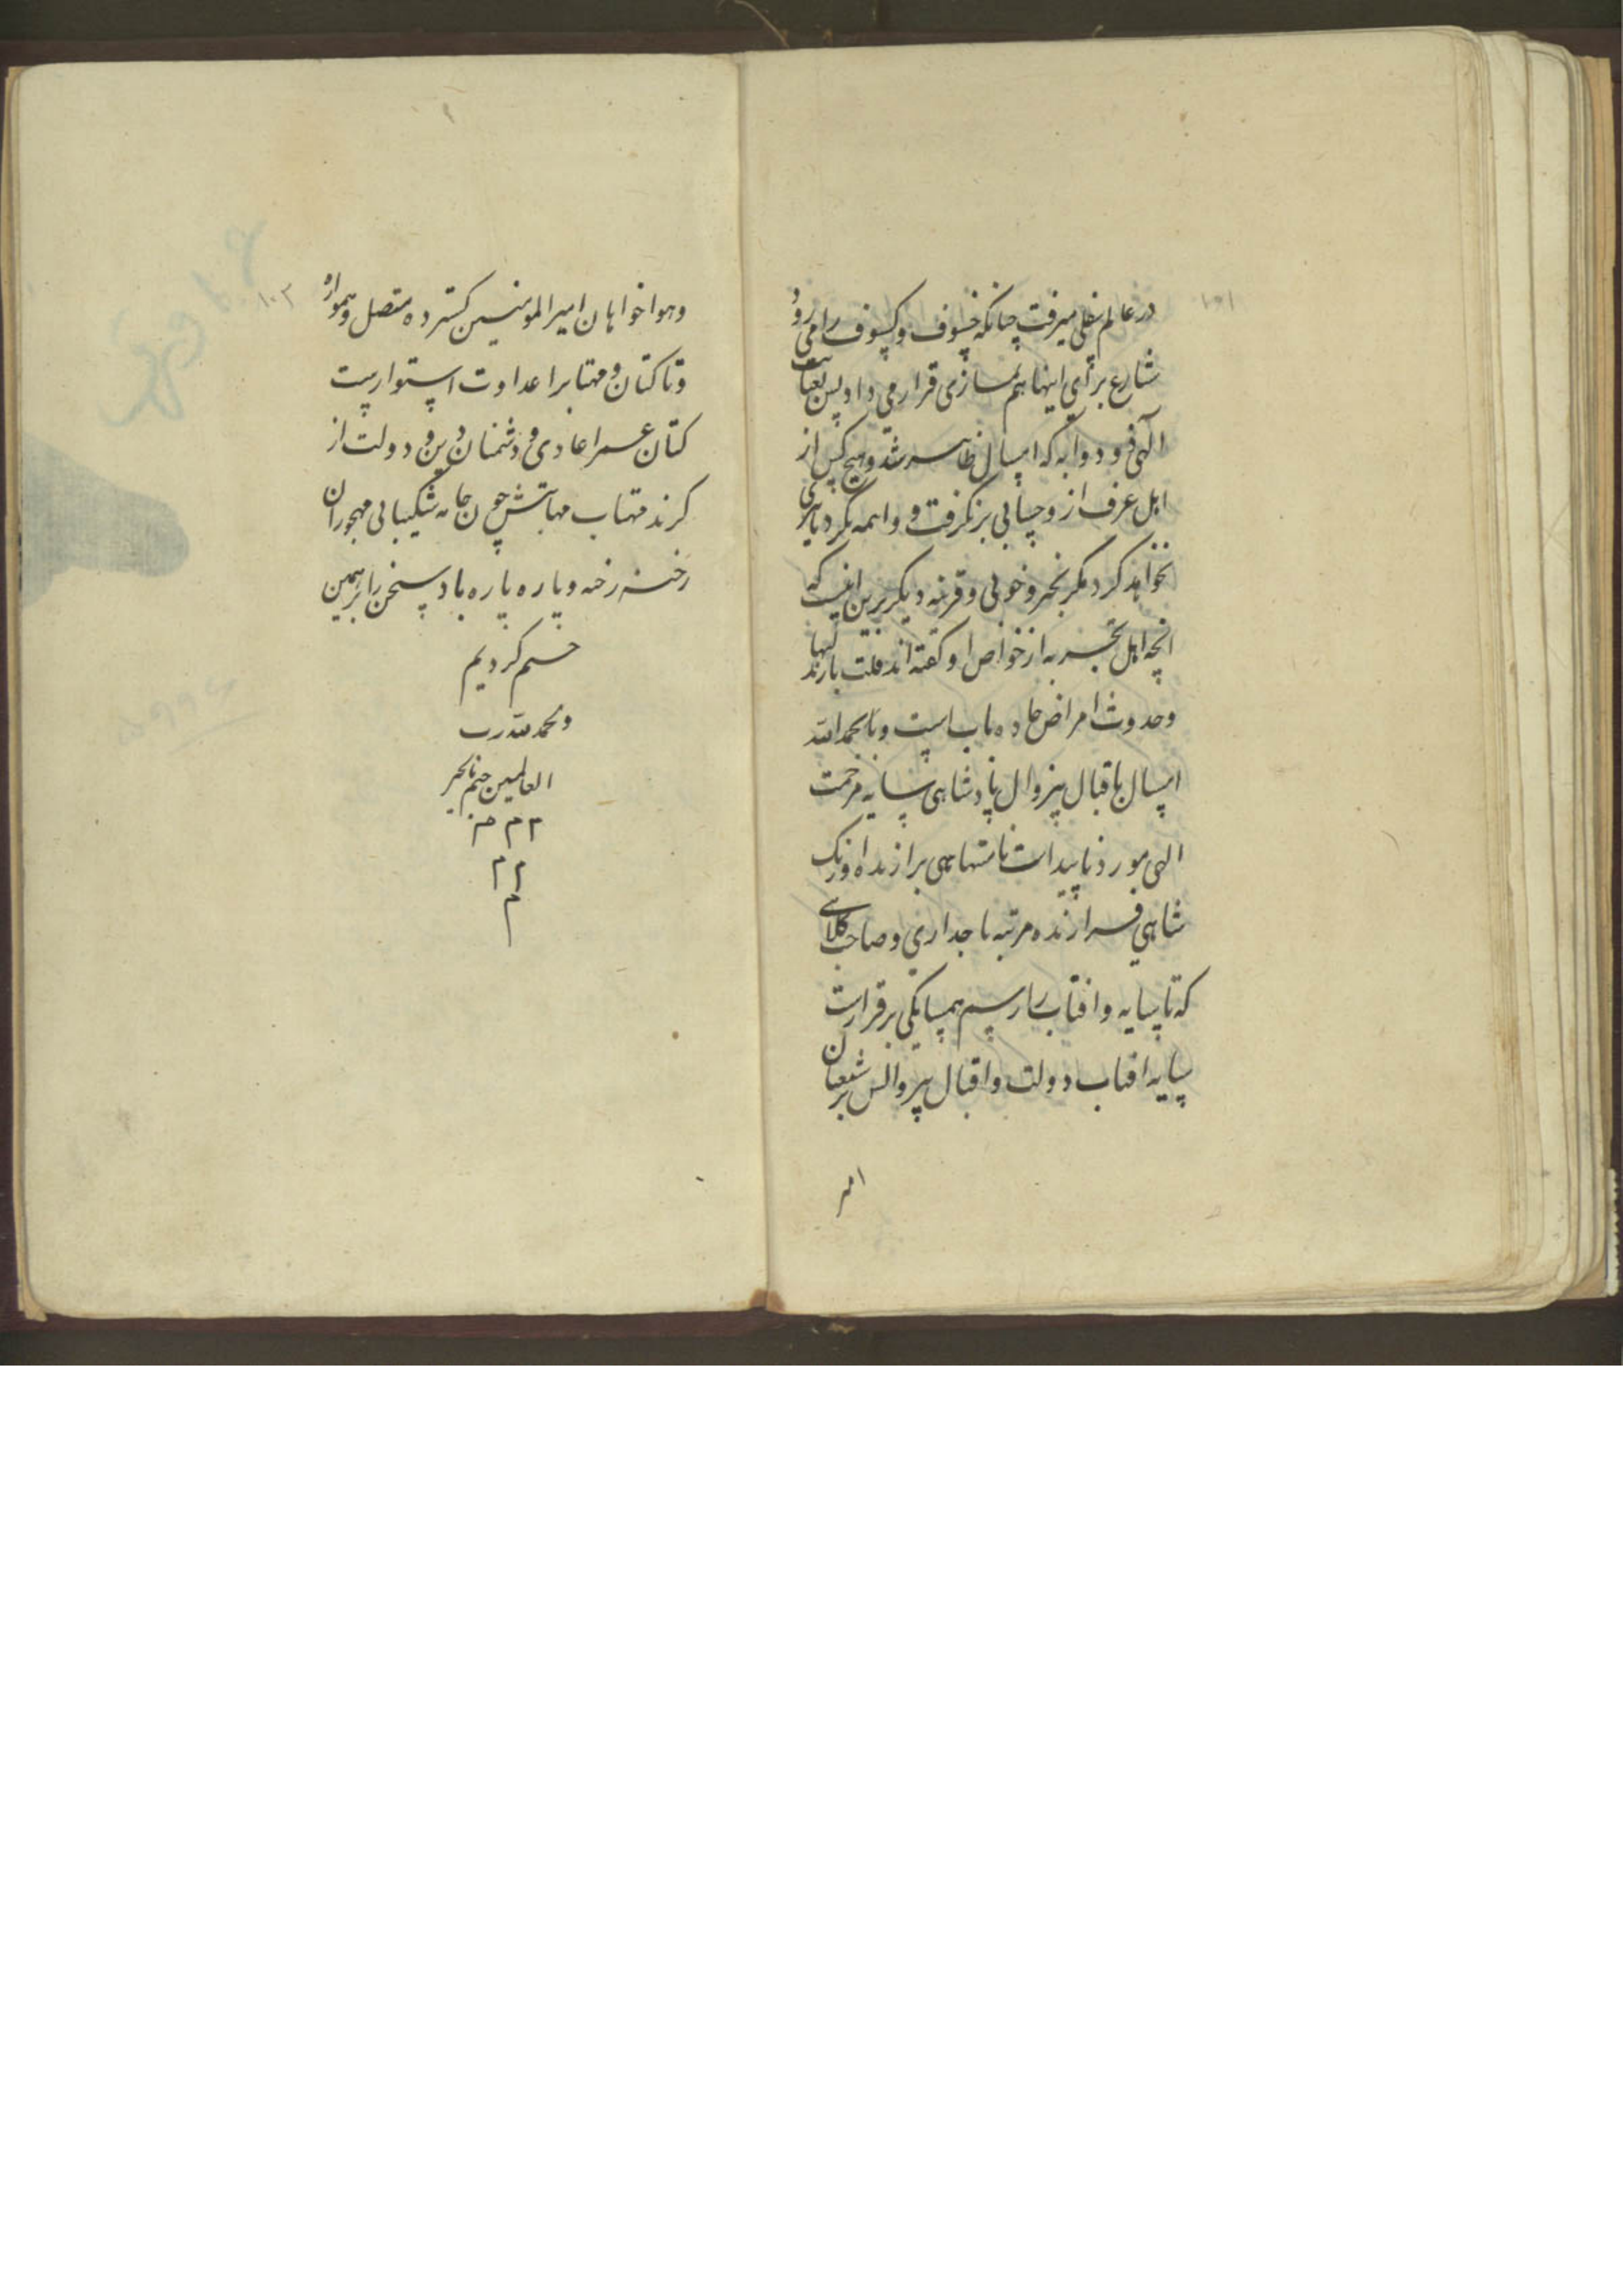 در عالم سفلی میرفت چنانکه خسوف و کسوف را می رود
شارع برای اینها هم نمازی قرار می داد پس
الهی و دوابه که امسال ظاهر شد و هیچ کس از
اهل عرف از و حسابی بر نکرفت و واهمه نکرد
نخواهد کرد مکر بخیر و خوبی و قرینه دیکر برین اینست که
انچه اهل تجربه از خواص او کفته اند قلت بارندکیها
وحدوث امراض حاده است و بحمدالله
امسال باقبال بیزوال پادشاهی سایه مرحمت
الهی مورد تایید است نامتناهی برازنده اورنک
شاهی فرازنده مرتبه تاجداری و صاحب کلاهی
که تا سایه و افتاب را رسم همسایکی برقرارست
سایه افتاب دولت و اقبال بیزوالش بر شیعیان
امیر
وهواخواهان امیرالمومنین کسترده متصل وهمواره
وتا کتان و مهتابرا عداوت استوارست
کتان عمر اعادی و دشمنان دین و دولت از
کزند مهتاب مهابتش چون جامه شکیبایی مهجوران
رخنه رخنه و پاره پاره باد سخن را برهمین
ختم کردیم
والحمد لله رب
العالمین ختم بالخیر
۱۰۱
۱۰۲